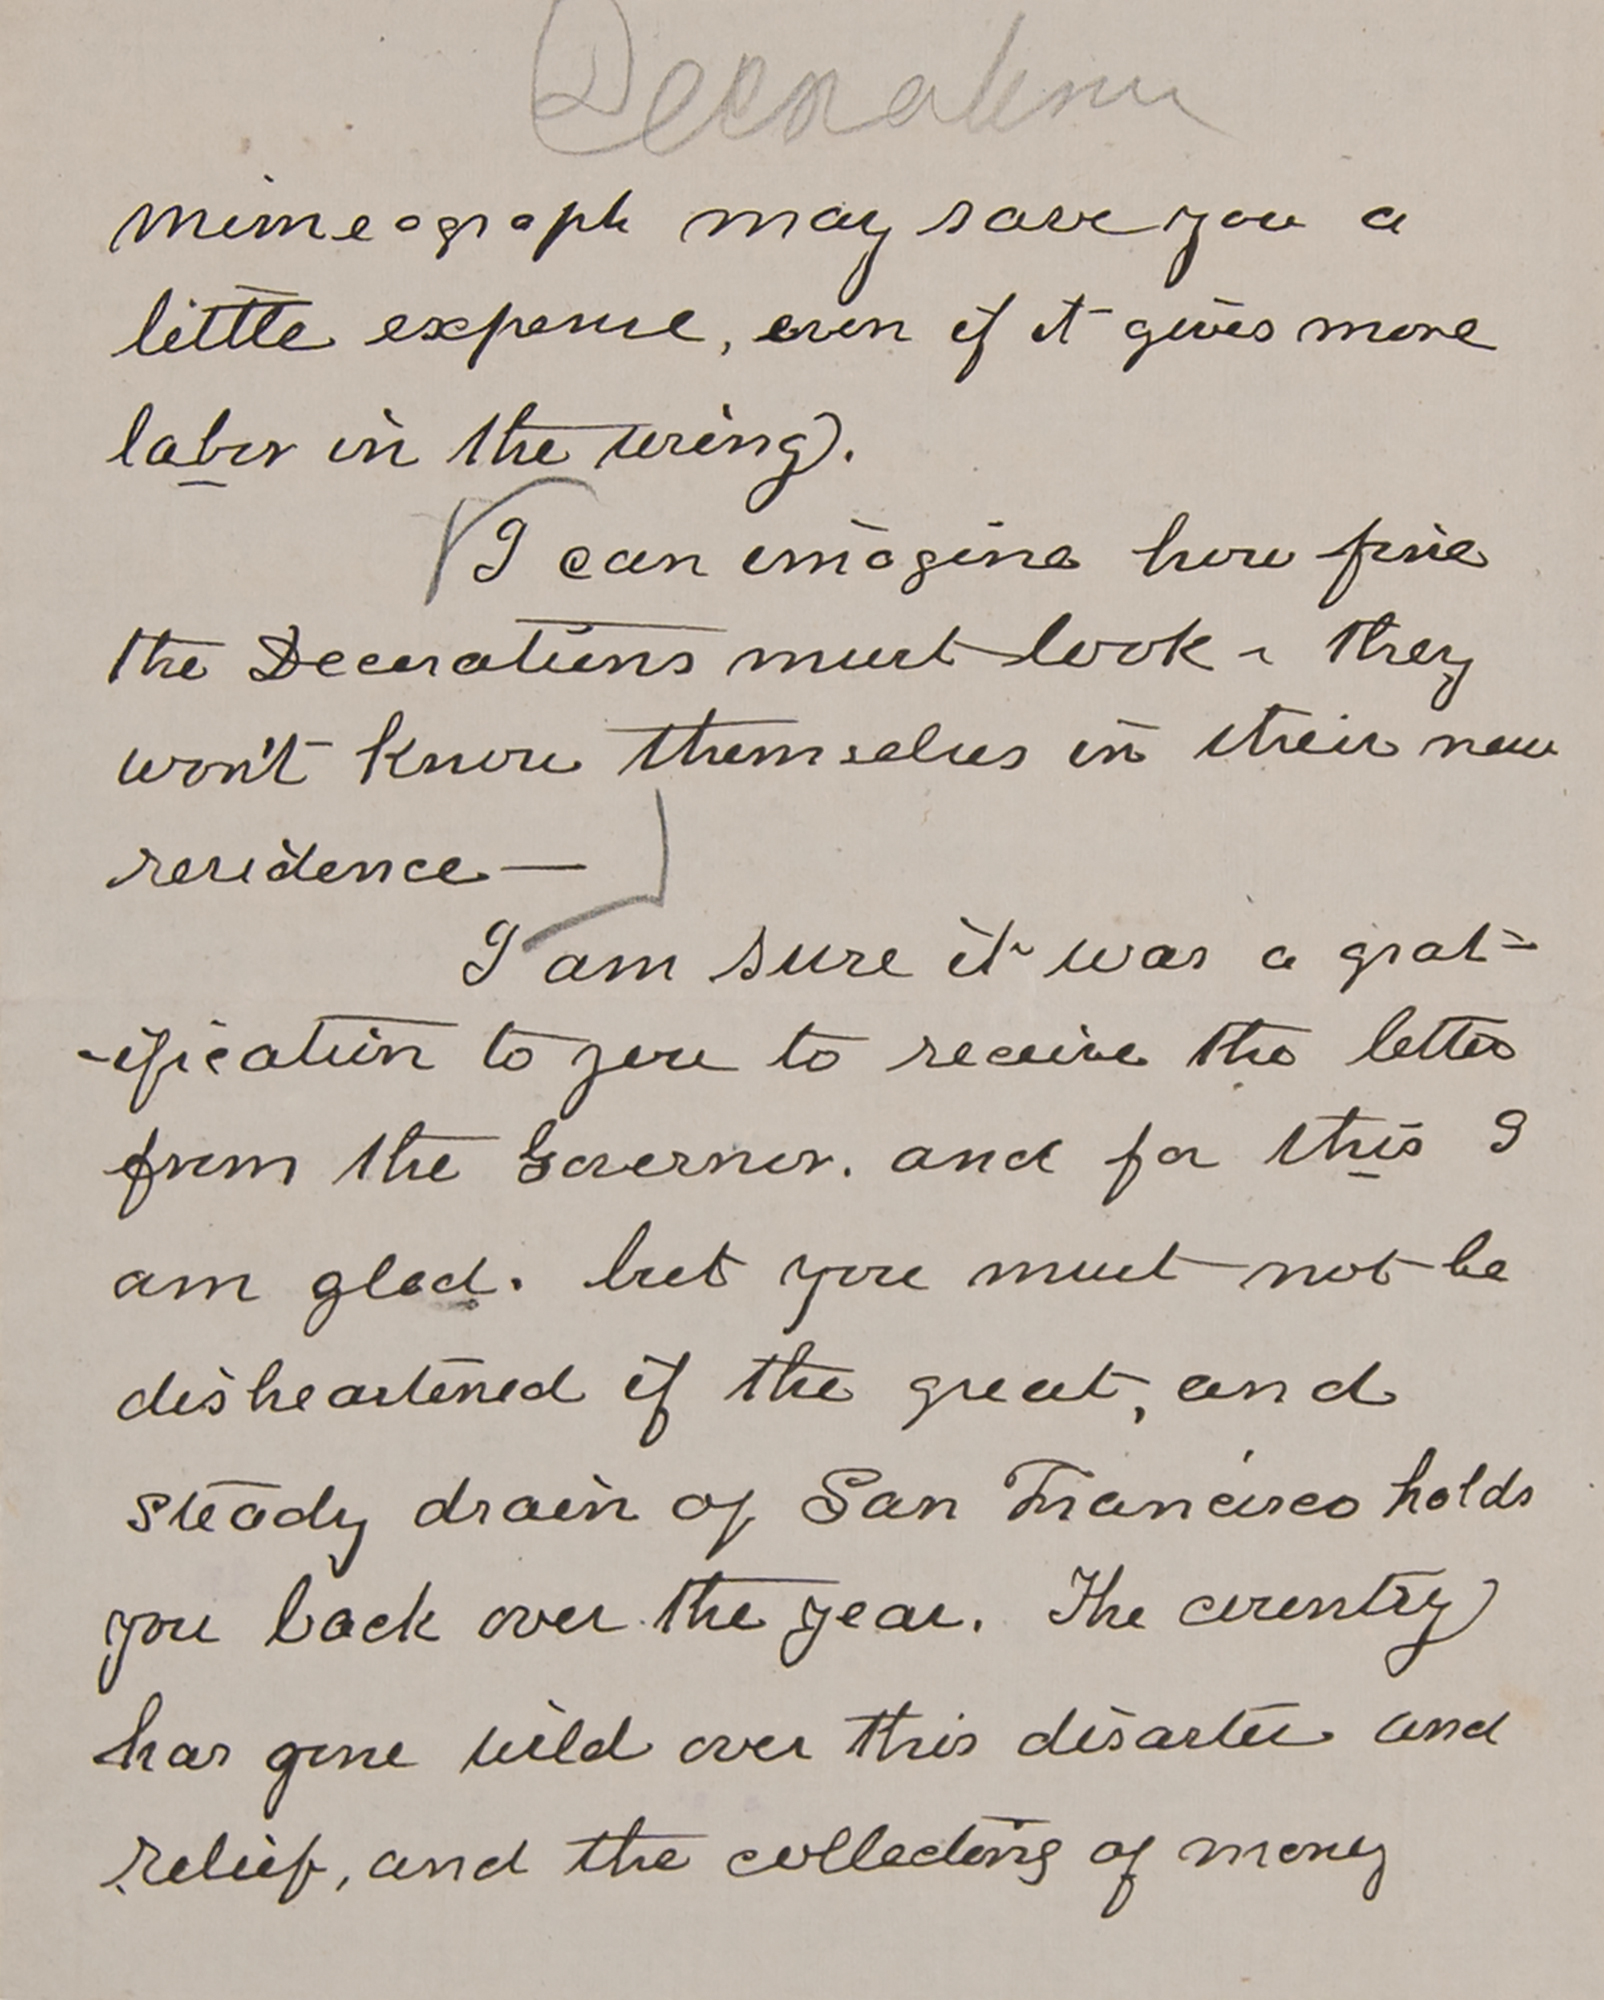 Decoration
mimeograph may save you a
little expense, even if it gives more
labor in the using.
I can imagine how fine
the Decorations must look - they
won't know themselves in their new
residence —
I am sure it was a grat-
-ification to you to receive the letter
from the Governor. and for this I
am glad. but you must not be
disheartened if the great, and
steady drain of San Francisco holds
you back over the year. The country
has gone wild over this disaster and
relief, and the collecting of money